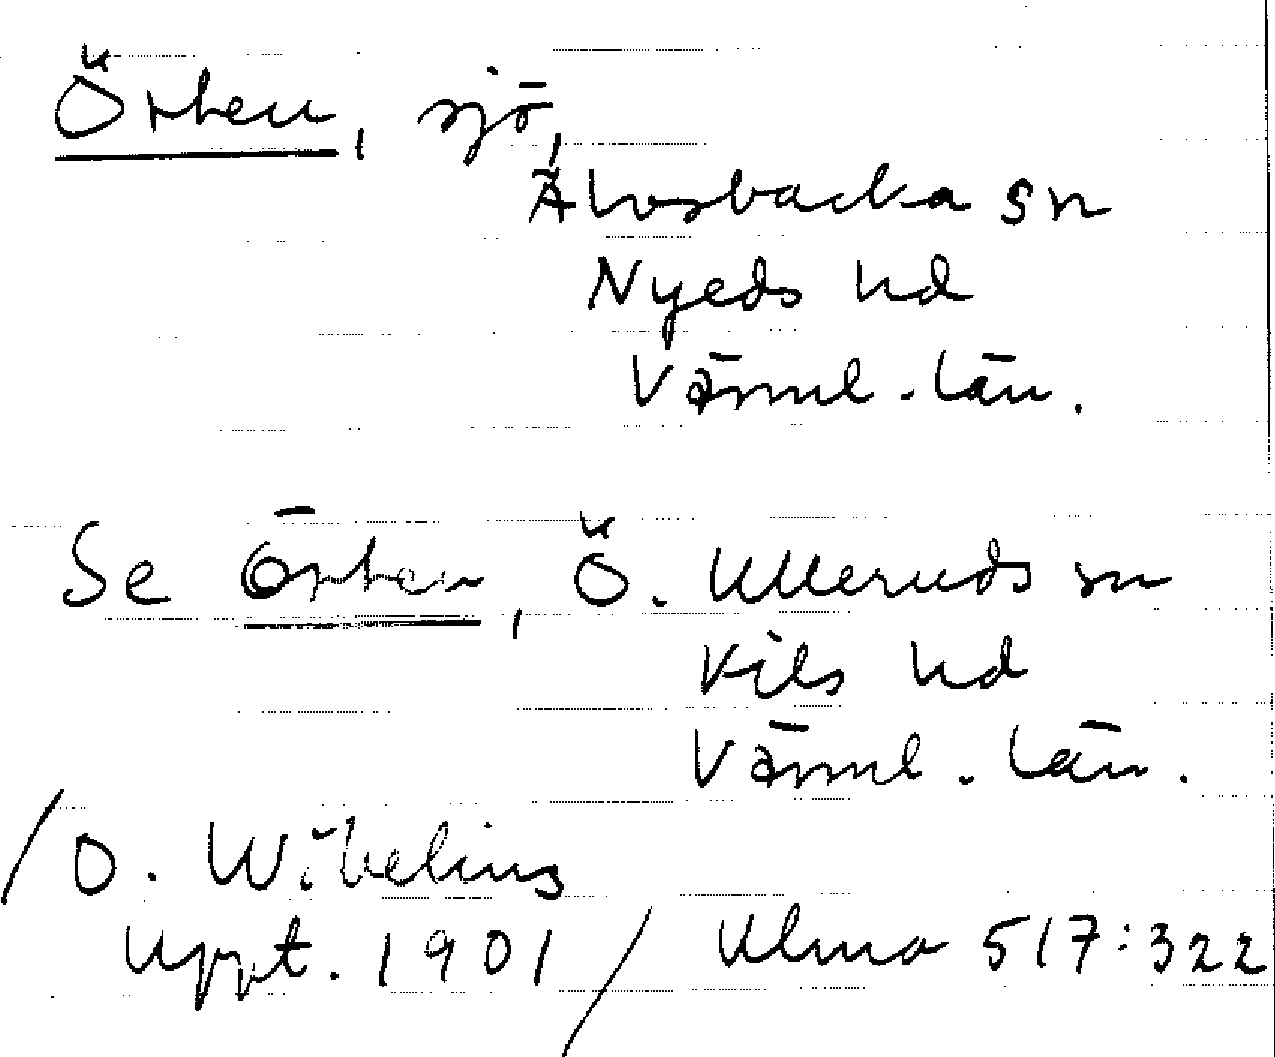 Örten, sjö,
Älvsbacka sn
Nyeds hd
Värml. län.
Se Örten, Ö. Ulleruds sn
Kils hd
Värml. län.
/O. Wibelius
uppt. 1901/ Ulma 517:322